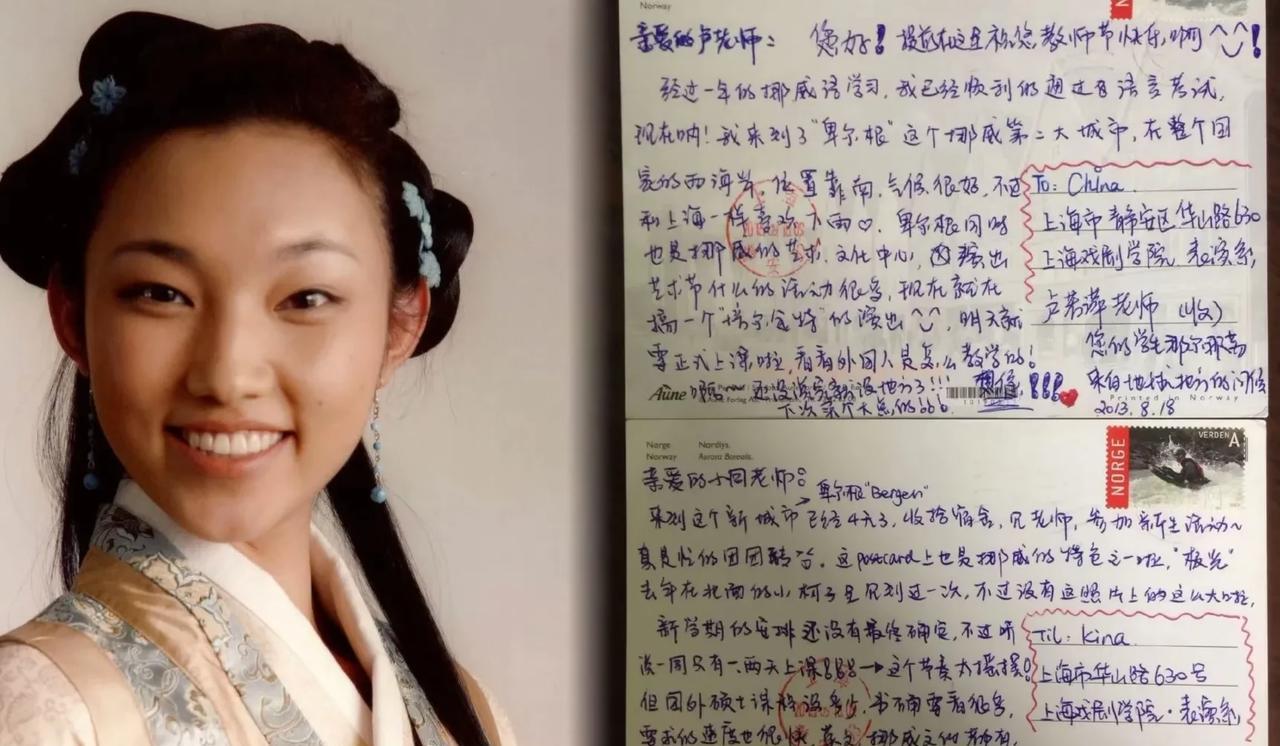 Norway
亲爱的卢老师： 您好！提前在这里祝您教师节快乐，啊 ^_^！
经过一年的挪威语学习，我已经顺利的通过B语言考试，
现在呐！我来到了“卑尔根”这个挪威第二大城市，在整个国
家的西海岸，位置靠南，气候很好，不过
和上海一样喜欢下雨♡，卑尔根同时
也是挪威的艺术，文化中心，演出
艺术节什么的活动很多，现在就在
搞一个“培尔·金特”的演出 ^_^，明天就
要正式上课啦，看看外国人是怎么教学的！
还没说完就没地方了！！！
下次来个大点的
想您！！！
To: China
上海市静安区华山路630
上海戏剧学院 表演系
卢若萍老师 (收)
您的学生那尔那茜
来自地球
2013.8.18
Aune
Printed in Norway
Norge
Norway
Nordlys.
Aurora Borealis.
NORGE
VERDEN A
亲爱的小周老师：
卑尔根“Bergen”
来到这个新城市已经4天了，收拾宿舍，见老师，参加新生活动~
真是忙的团团转啊，这postcard上也是挪威的特色之一啦，“极光”
去年在北面的小村子里见到过一次，不过没有这照片上的这么大啦，
新学期的安排还没有最终确定，不过听
说一周只有一两天上课 → 这个节奏为摇摆！
但国外硕士课程没多少，书而需看很多，
要求的速度也很快，
Til: Kina
上海市华山路630号
上海戏剧学院·表演系